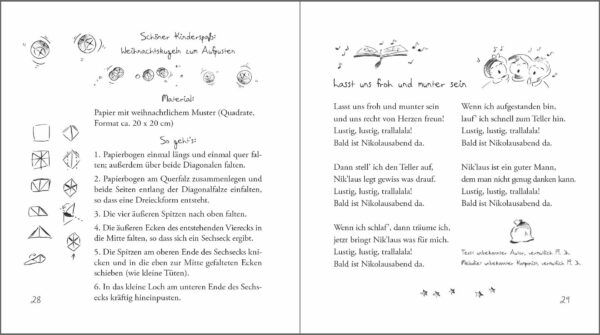 Schöner Kinderspaß:
Weihnachtskugeln zum Aufpusten
Material:
Papier mit weihnachtlichem Muster (Quadrate,
Format ca. 20 x 20 cm)
So geht's:
1. Papierbogen einmal längs und einmal quer fal-
ten; außerdem über beide Diagonalen falten.
2. Papierbogen am Querfalz zusammenlegen und
beide Seiten entlang der Diagonalfalze einfalten,
so dass eine Dreieckform entsteht.
3. Die vier äußeren Spitzen nach oben falten.
4. Die äußeren Ecken des entstehenden Vierecks in
die Mitte falten, so dass sich ein Sechseck ergibt.
5. Die Spitzen am oberen Ende des Sechsecks kni-
cken und in die eben zur Mitte gefalteten Ecken
schieben (wie kleine Tüten).
6. In das kleine Loch am unteren Ende des Sechs-
ecks kräftig hineinpusten.
28
Lasst uns froh und munter sein
Lasst uns froh und munter sein
und uns recht von Herzen freun!
Lustig, lustig, trallalala!
Bald ist Nikolausabend da.
Dann stell' ich den Teller auf,
Nik'laus legt gewiss was drauf.
Lustig, lustig, trallalala!
Bald ist Nikolausabend da.
Wenn ich schlaf', dann träume ich,
jetzt bringt Nik'laus was für mich.
Lustig, lustig, trallalala!
Bald ist Nikolausabend da.
Wenn ich aufgestanden bin,
lauf' ich schnell zum Teller hin.
Lustig, lustig, trallalala!
Bald ist Nikolausabend da.
Nik'laus ist ein guter Mann,
dem man nicht genug danken kann.
Lustig, lustig, trallalala!
Bald ist Nikolausabend da.
Text: unbekannter Autor, vermutlich 19. Jh.
Melodie: unbekannter Komponist, vermutlich 19. Jh.
29